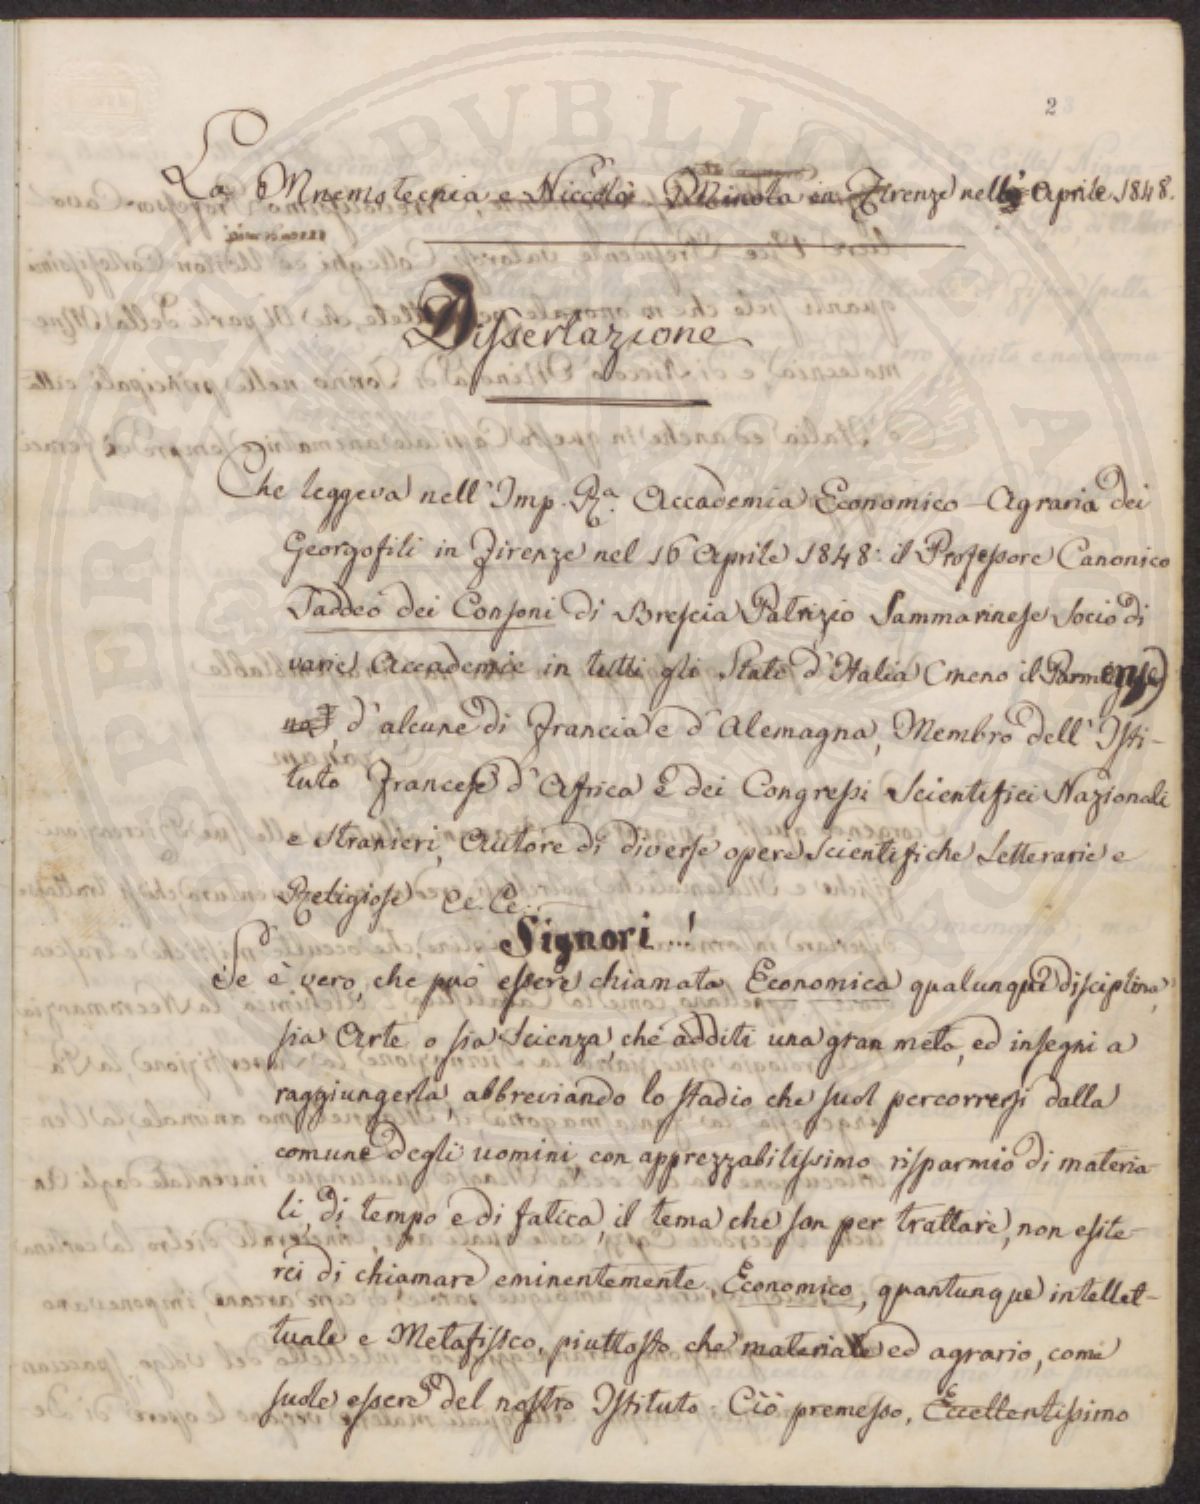 2
La Mnemotecnia e Niccolò Minola in Firenze nell' Aprile 1848.
Dissertazione
Che leggeva nell' Imp. Rª. Accademia Economico-Agraria dei
Georgofili in Firenze nel 16 Aprile 1848: il Professore Canonico
Taddeo dei Consoni di Brescia Patrizio Sammarinese Socio di
varie Accademie in tutti gli Stati d'Italia (meno il Parmense)
d'alcune di Francia e d'Alemagna, Membro dell' Isti-
tuto Francese d'Africa e dei Congressi Scientifici Nazionali
e stranieri, Autore di diverse opere Scientifiche Letterarie e
Religiose Ec. Ec.
Signori...!
Se è vero, che può essere chiamata Economica qualunque disciplina,
sia Arte o sia Scienza, che additi una gran meta, ed insegni a
raggiungerla, abbreviando lo stadio che suol percorrersi dalla
comune degli uomini, con apprezzabilissimo risparmio di materia-
li, di tempo e di fatica, il tema che son per trattare, non esite-
rei di chiamare eminentemente Economico, quantunque intellet-
tuale e Metafisico, piuttosto che materiale ed agrario, come
suole essere del nostro Istituto. Ciò premesso, Eccellentissimo